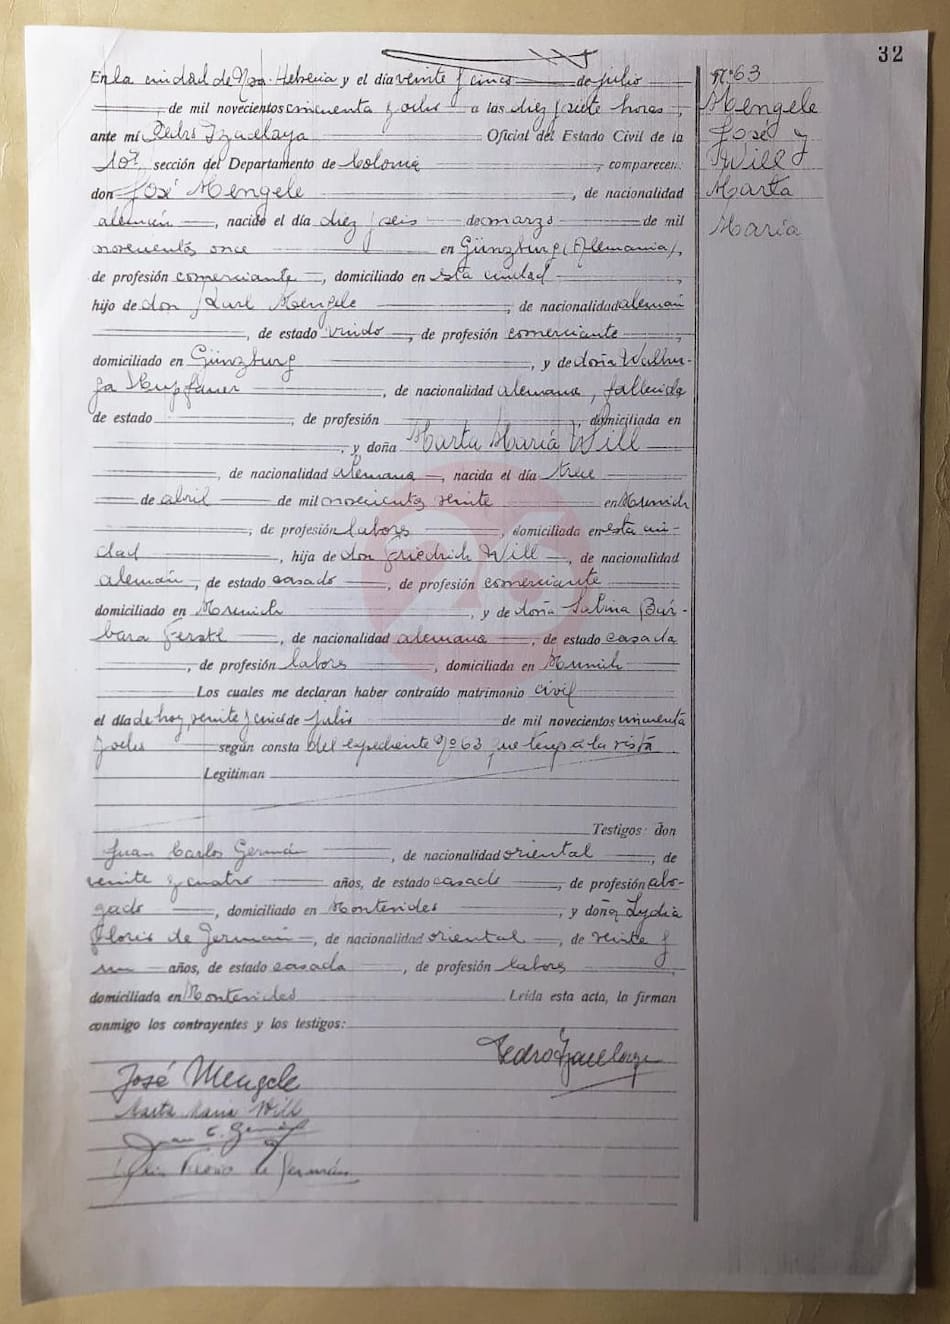 32
En la ciudad de Nva. Helvecia y el día veinte y cinco de julio
de mil novecientos cincuenta y ocho a las diez y siete horas,
ante mí Pedro Izacelaya Oficial del Estado Civil de la
10ª sección del Departamento de Colonia, comparecen:
don José Mengele, de nacionalidad
alemán, nacido el día diez y seis de marzo de mil
novecientos once en Günzburg (Alemania),
de profesión comerciante, domiciliado en esta ciudad
hijo de don Karl Mengele, de nacionalidad alemán
, de estado viudo, de profesión comerciante,
domiciliado en Günzburg, y de doña Walbur-
ga Hupfauer, de nacionalidad alemana, fallecida
de estado, de profesión, domiciliada en
, y doña Marta María Will
, de nacionalidad alemana, nacida el día trece
de abril de mil novecientos veinte en Munich
, de profesión labores, domiciliada en esta ciu-
dad, hija de don Friedrich Will, de nacionalidad
alemán, de estado casado, de profesión comerciante
domiciliado en Munich, y de doña Sabina Bár-
bara Ferstl, de nacionalidad alemana, de estado casada
, de profesión labores, domiciliada en Munich
Los cuales me declaran haber contraído matrimonio civil
el día de hoy, veinte y cinco de julio de mil novecientos cincuenta
y ocho según consta del expediente Nº 63 que tengo a la vista
Legitiman
Testigos: don
Juan Carlos Germán, de nacionalidad oriental, de
veinte y cuatro años, de estado casado, de profesión abo-
gado, domiciliado en Montevideo, y doña Lydia
Floris de Germán, de nacionalidad oriental, de veinte y
un años, de estado casada, de profesión labores,
domiciliada en Montevideo Leída esta acta, la firman
conmigo los contrayentes y los testigos:
Pedro Izacelaya
José Mengele
Marta Maria Will
Juan C. Germán
de Germán
Nº 63
Mengele
José y
Will
Marta
María
26